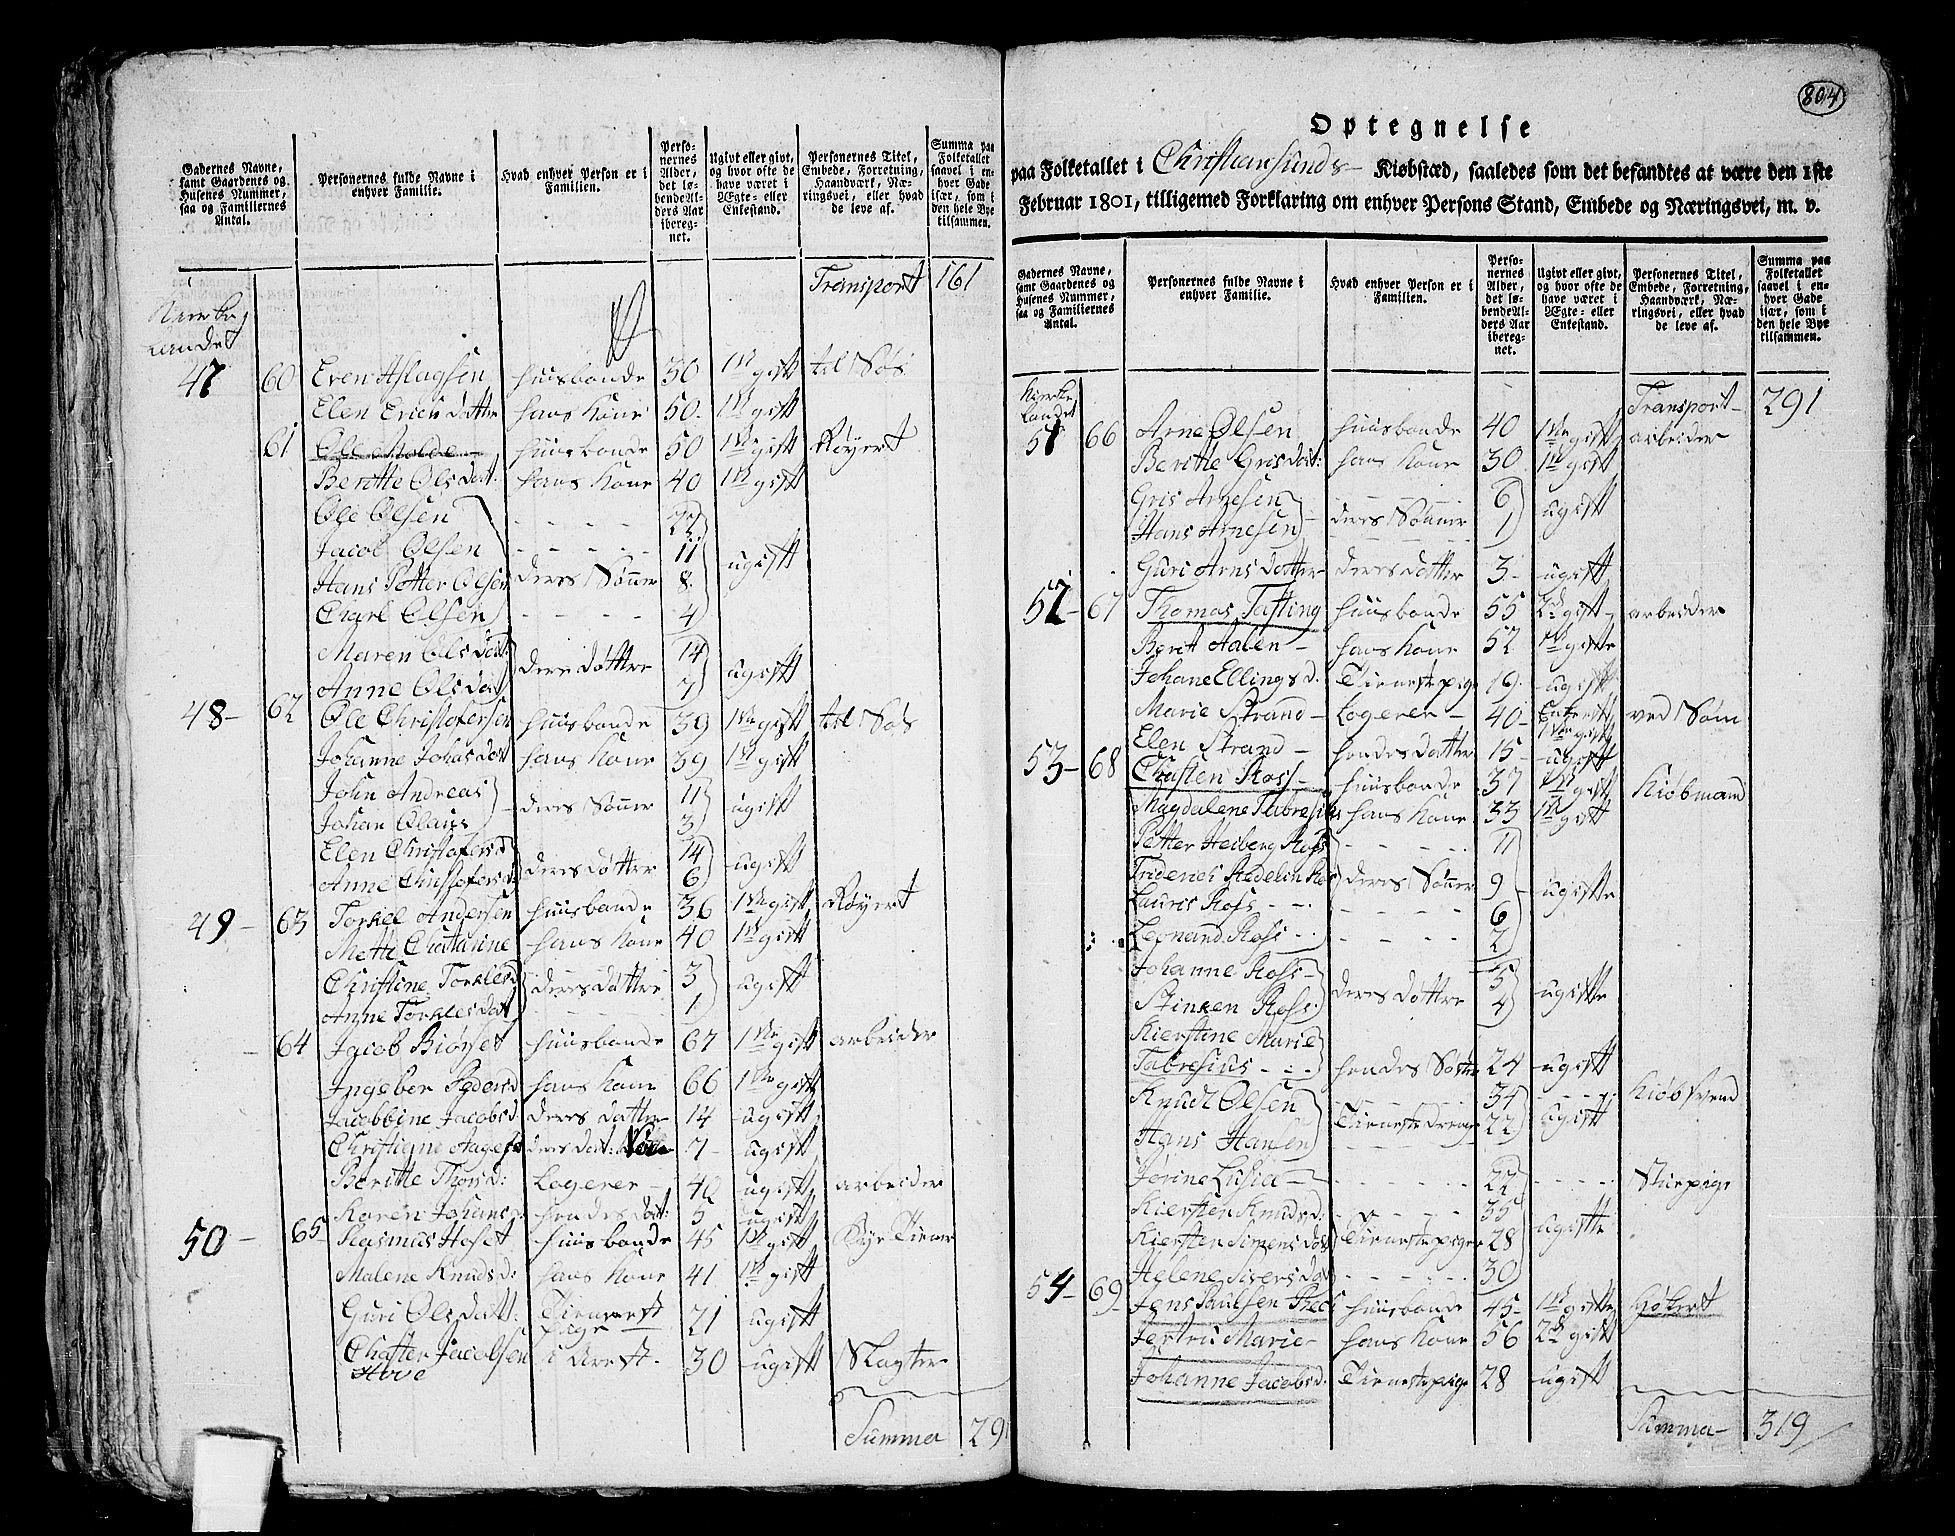 Gadernes Navne, samt Gaardenes og Husenes Nummer, saa og Familiernes Antal.
Personernes fulde Navne i enhver Familie.
Hvad enhver Person er i Familien.
Personernes Alder, det løbende Alders Aar iberegnet.
Ugivt eller givt, og hvor ofte de have været i Ægte- eller Enkestand.
Personernes Titel, Embede, Forretning, Haandværk, Næringsvei, eller hvad de leve af.
Summa paa Folketallet saavel i enhver Gade især, som i den hele Bye tilsammen.
Transport 161
47 60 Even Aslagsen huusbonde 50 1ste gift til Søs
Elen Erichsdatter hans Kone 50 1ste gift
61 Ole Molde huusbonde 50 1ste gift Røyert
Beritte Olsdatt. hans Kone 40 1ste gift
Ole Olsen - - - - 22
Jacob Olsen - - - - 11 ugift
Hans Petter Olsen deres Sønner 8
Charl Olsen - - - - 4
Maren Olsdat: 14
Anne Olsdat deres døttre 7 ugift
48 - 62 Ole Christofersen huusbonde 39 1ste gift til Søs
Johanne Johnsdat hans Kone 39 1ste gift
John Andreas 11
Johan Olaus deres Sønner 3 ugift
Elen Christofersd 14
Anne Christofersd: deres døttre 6 ugift
49 - 63 Torkel Andersen huusbonde 36 1ste gift Røyert
Mette Chatarine hans Kone 40 1ste gift
Christine Torkelsd deres døttre 3 ugift
Anne Torkelsdat 1
- 64 Jacob Biørset huusbonde 67 1ste gift arbeider
Ingeber Pedersd hans Kone 66 1ste gift
Jacobbine Jacobsd. deres datter 14 ugift
Christiane Aages deres dat: 7 ugift
Beritte Thorsd: Logerer - 40 ugift arbeider
Karen Johansd: hendes dat: 5 ugift
50 - 65 Rasmus Hoset huusbonde 45 1ste gift Bye Tiener
Malene Knudsd: hans Kone 41 1ste gift
Guri Olsdatt: Tienneste pige 21 ugift
Chaster Jacobsen Hove 30 ugift Slagter
Summa 29
804
Optegnelse
paa Folketallet i Christiansunds Kiøbstæd, saaledes som det befandtes at være den 1ste
Februar 1801, tilligemed Forklaring om enhver Persons Stand, Embede og Næringsvei, m. v.
Gadernes Navne, samt Gaardenes og Husenes Nummer, saa og Familiernes Antal.
Personernes fulde Navne i enhver Familie.
Hvad enhver Person er i Familien.
Personernes Alder, det løbende Alders Aar iberegnet.
Ugivt eller givt, og hvor ofte de have været i Ægte- eller Enkestand.
Personernes Titel, Embede, Forretning, Haandværk, Næringsvei, eller hvad de leve af.
Summa paa Folketallet saavel i enhver Gade især, som i den hele Bye tilsammen.
Transport - 291
51 66 Arne Olsen huusbonde 40 1ste gift arbeider
Beritte Grisdat: hans Kone 30 1ste gift
Gris Arnesen 6
Hans Arnesen deres Sønner 1 ugift
Guri Arnsdatter deres datter 3 ugift
52 - 67 Thomas Tafting huusbonde 55 2d gift arbeider
Berit Aalen - hans Kone 52 1ste gifte
Johane Ellingsd. Tienestepige 19 ugift
Marie Strand - Logerer - 40 1ste gift ved Søm
Elen Strand - hendes datter 15 ugift
53 - 68 Chasten Ross huusbonde 37 1ste gift Kiøbmand
Magdalene Tabresius hans Kone 33 1ste gift
Petter Heiberg Ross - - - - 11
Friderich Ross deres Sønner 9 ugifte
Lauris Ross - - - 6
Leonard Ross - - - 2
Johanne Ross - 5
Stinken Ross deres døttre 4 ugifte
Kierstine Marie
Tabresius - - - hendes Søster 24 ugift
Knudt Olsen 34 Kiøbsvend
Hans Hansen Tienestedrenge 22 ugift
Jorine Lusia - - - - - 22 - - - Stuepige
Kiersten Knudsd: - - - - 35
Kiersten Simensdat Tienestepiger 28 ugifte
Helene Siversdat - - - - 30
54 - 69 Jens Paulsen huusbonde 45 1ste gifte
Jertru Marie - hans Kone 56 2d gift
Johanne Jacobsd. Tienestepige 28 ugift
Summa - 319